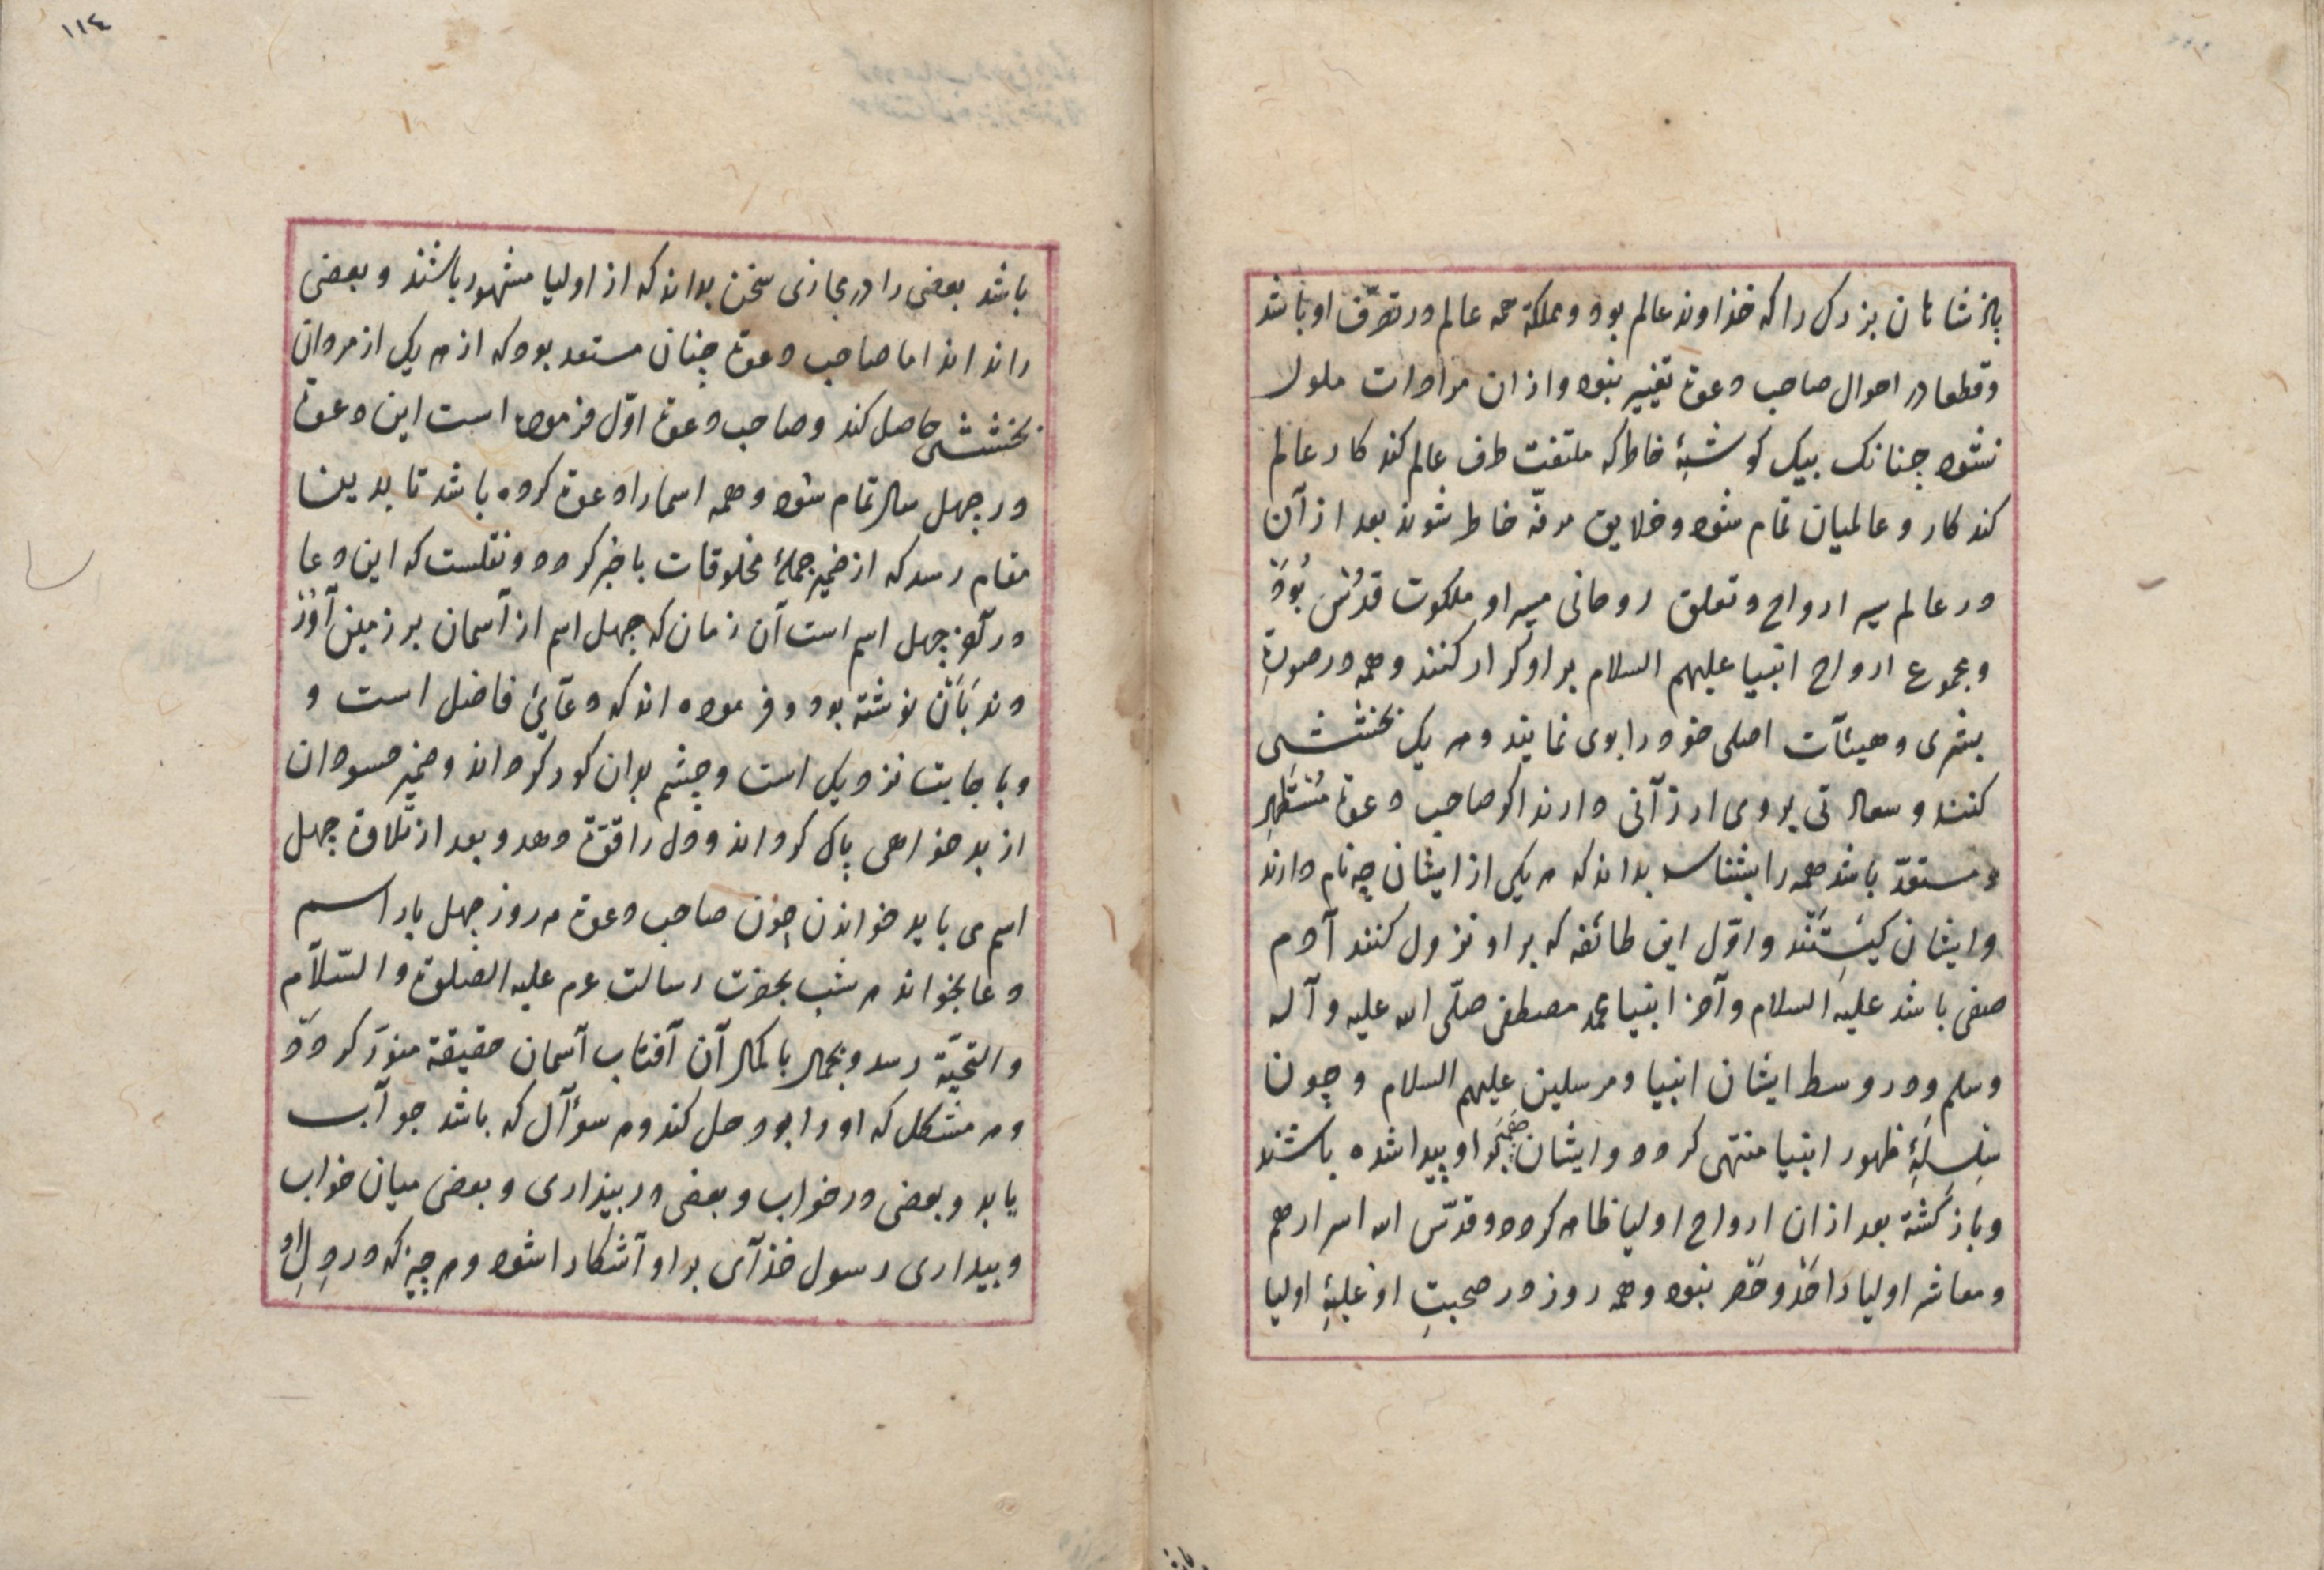 پاذشاهان بزرک را که خذاوند عالم بود و مملکة همه عالم در تصرّف او باشد
و قطعا در احوال صاحب دعوة تغییر نبود و از ان مرادات ملول
نشود جنانک بیک کوشۀ خاطر که ملتفت طرف عالم کند کار عالم
کند کار و عالمیان تمام شود و خلایق مرفّه خاطر شوند بعد از آن
در عالم سیر ارواح و تعلق روحانی سیر او ملکوت قدُس بُوَد
و مجموع ارواح انبیا علیهم السلام بر او کرار کنند و همه در صورتِ
بشری و هیئآت اصلی خود را بوی نمایند و هر یک بخششی
کنند و سعادتی بر وی ارزآنی دارند اکر صاحب دعوة مُسْتَظْهِر
و مستعدّ باشد همه را بشناسد بداند که هر یکی از ایشان چه نام دارند
و ایشان کیَستَنْد و اوّل این طائفه که بر او نزول کنند آدم
صفی باشد علیه السلام و آخر انبیا محمد مصطفی صلّی الله علیه و آله
و سلم و در وسط ایشان انبیا و مرسلین علیهم السلام و چون
سِلسِلۀ ظهور انبیا منتهی کردد و ایشان او پیدا شده باشند
و باز کشته بعد از ان ارواح اولیا ظاهر کردد و قدّس الله اسرارهم
و معاشر اولیا را حَدّ و حَصر نبود و همه روز در صحبتِ او غلبۀ اولیا
١١٤
باشد بعضی را در مجازی سخن بداند که از اولیا مشهور باشند و بعضی
را نداند اما صاحب دعوة چنان مستعد بود که از هر یک از مردان
بخششی حاصل کند و صاحب دعوة اوّل فرموده است این دعوة
در جهل سال تمام شود و همه اسما را دعوة کرده باشد تا بدینا
مقام رسد که از ضمیر جملۀ مخلوقات باخبر کردد و نقلست که این دعا
در آخر جهل اسم است آن زمان که جهل اسم از آسمان بر زمین آورد
وند بَآن نوشته بود و فرموده اند که دعآئ فاضل است و
و باجابت نزدیک است و چشم بدان کور کرداند و ضمیر حسودان
از بدخواهی پاک کرداند و دل را قوّة دهد و بعد از تلاوة جهل
اسم می باید خواندن چون صاحب دعوة هر روز جهل بار اسم
دعا بخواند هر شب بحضرت رسالت عرم علیه الصّلوة و السّلآم
و التحیّة رسد و بجمال باکمال آن آفتاب آسمان حقیقة منوّر کردد
و هر مشکل که او را بود حل کند و هر سوآل که باشد جوآب
یابد و بعضی در خواب و بعضی در بیذاری و بعضی میان خواب
و بیداری رسول خذآی بر او آشکارا شود و هر چیز که در دِلِ او